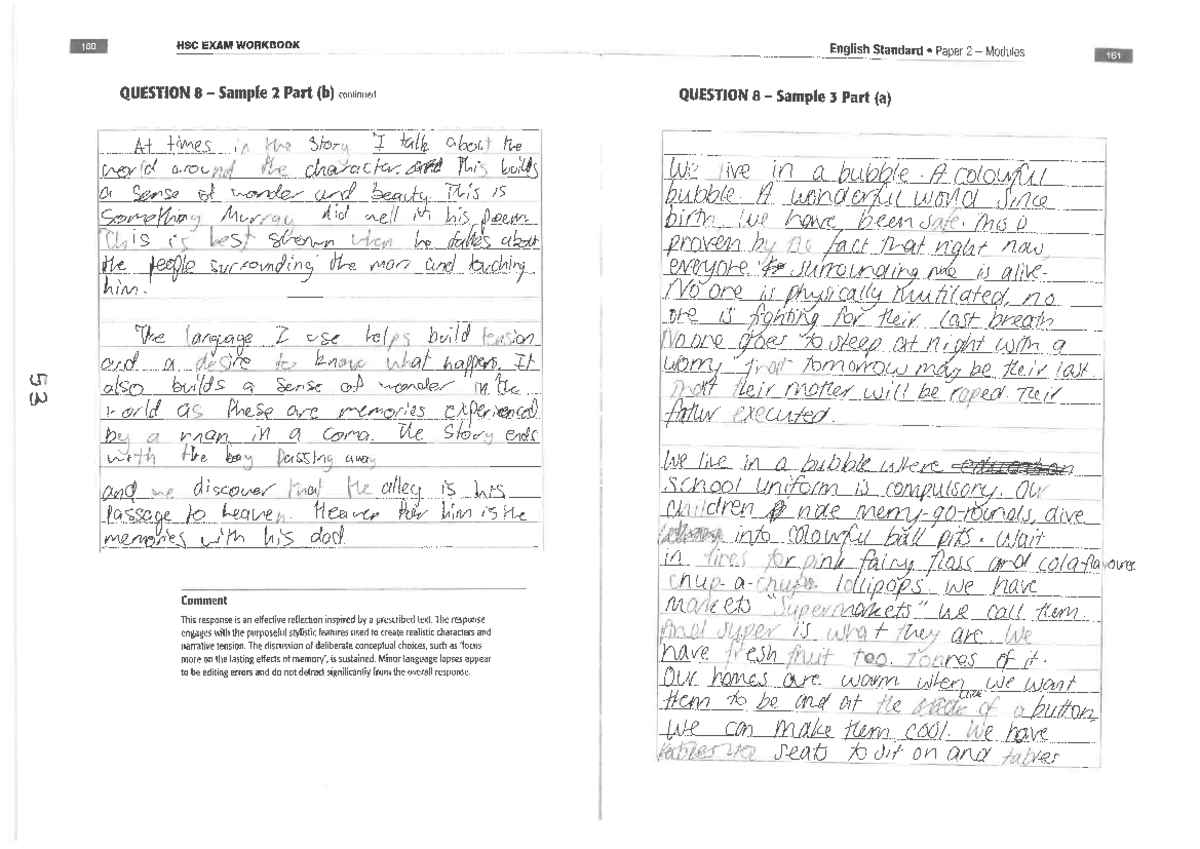 160
HSC EXAM WORKBOOK
QUESTION 8 – Sample 2 Part (b) continued
At times in the story I talk about the
world around the character. This builds
a sense of wonder and beauty. This is
something Murray did well in his poem
This is best shown when he talks about
the people surrounding the man and touching
him.
The language I use helps build tension
and a desire to know what happens. It
also builds a sense of wonder in the
world as these are memories experienced
by a man in a coma. The story ends
with the boy passing away
and we discover that the alley is his
passage to heaven. Heaven for him is the
memories with his dad.
Comment
This response is an effective reflection inspired by a prescribed text. The response
engages with the purposeful stylistic features used to create realistic characters and
narrative tension. The discussion of deliberate conceptual choices, such as 'focus
more on the lasting effects of memory', is sustained. Minor language lapses appear
to be editing errors and do not detract significantly from the overall response.
53
English Standard • Paper 2 – Modules
161
QUESTION 8 – Sample 3 Part (a)
We live in a bubble. A colourful
bubble. A wonderful world since
birth, we have been safe. This is
proven by the fact that right now,
everyone surrounding me is alive.
No one is physically mutilated, no
one is fighting for their last breath
No one goes to sleep at night with a
worry that tomorrow may be their last.
That their mother will be raped. Their
father executed.
We live in a bubble where
school uniform is compulsory. Our
children ride merry-go-rounds, dive
into colourful ball pits. Wait
in lines for pink fairy floss and cola-flavoured
chup-a-chups lollipops. We have
markets "Supermarkets" we call them.
And super is what they are. We
have fresh fruit too. Tonnes of it.
Our homes are warm when we want
them to be and at the click of a button,
we can make them cool. We have
seats to sit on and tables